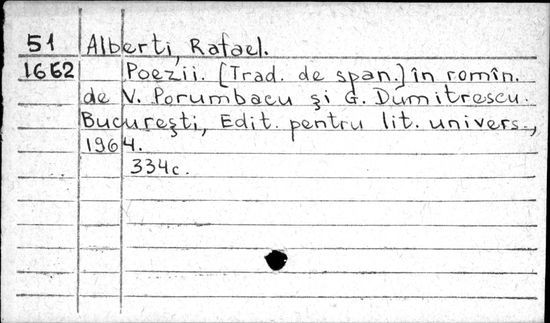 51 Alberti, Rafael.
1662 Poezii. [Trad. de span.] în romîn.
de V. Porumbacu şi G. Dumitrescu.
Bucureşti, Edit. pentru lit. univers.,
1964.
334c.